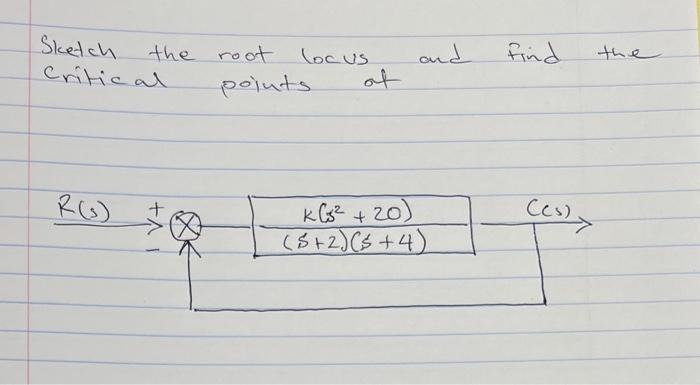 Sketch the root locus and find the
critical points of
R(s) + C(s)
K(s² + 20)
-
(s+2)(s+4)